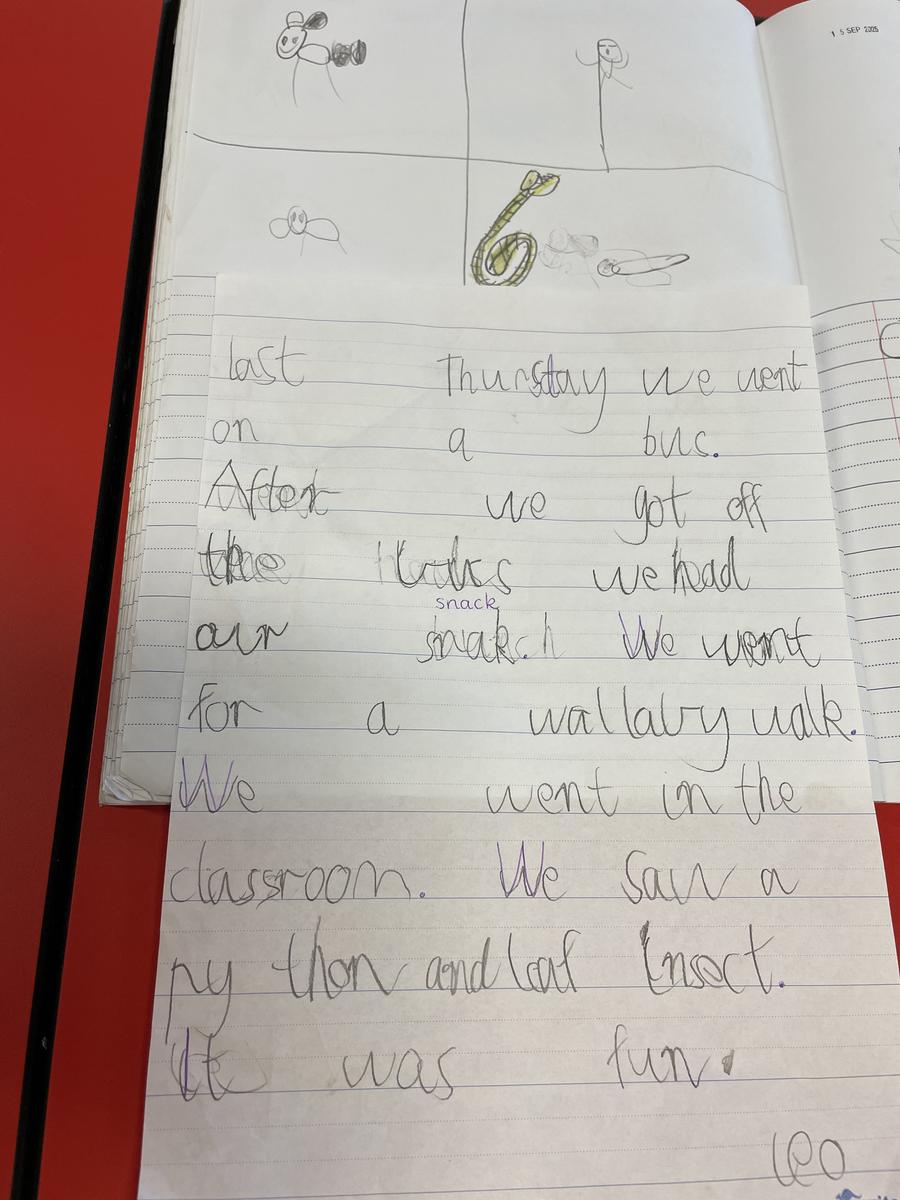 15 SEP 2025
last Thurstay we went
on a bus.
After we got off
the we had
snack
our snak. We went
for a wallaby walk.
We went in the
classroom. We saw a
py thon and leaf Insect.
It was fun.
leo